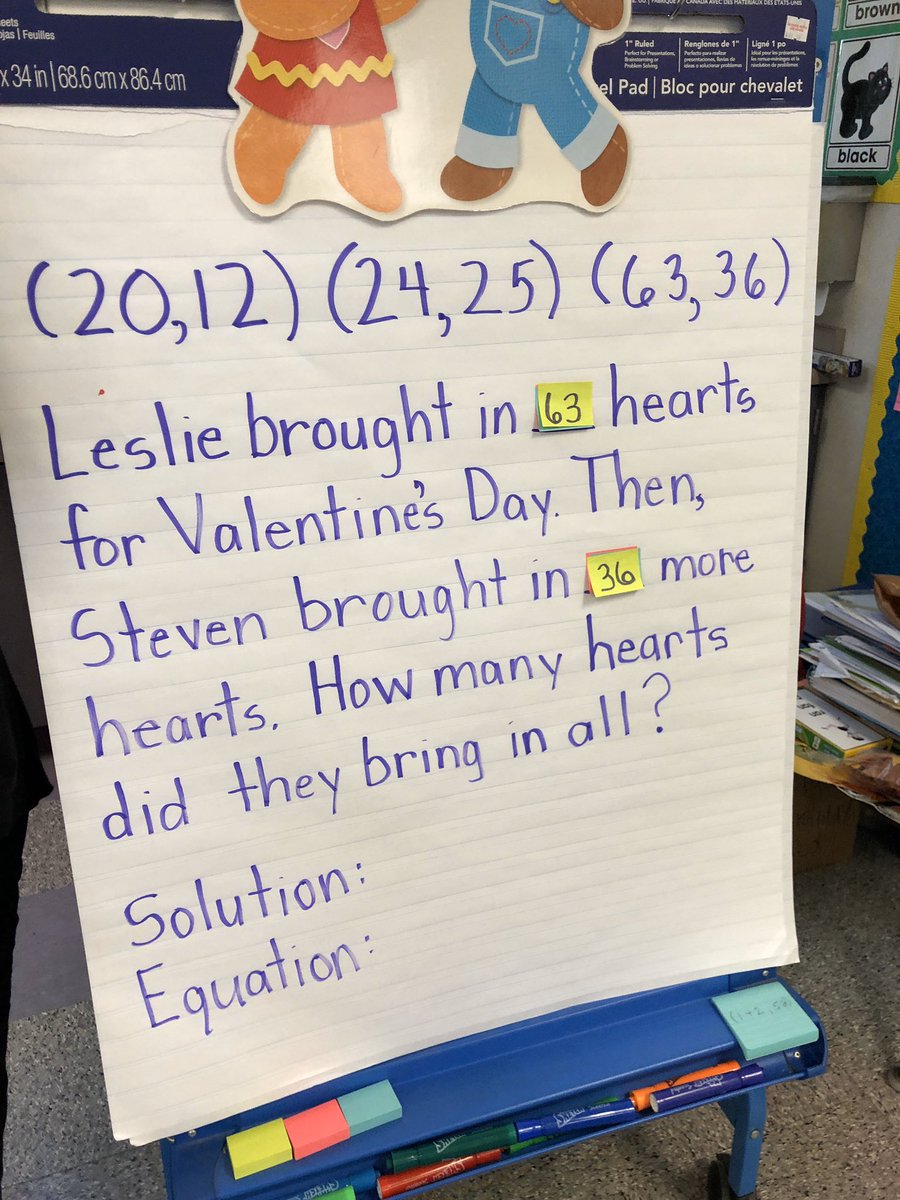 eets
ojas | Feuilles
x 34 in | 68.6 cm x 86.4 cm
1" Ruled
Perfect for Presentations,
Brainstorming or
Problem Solving
Renglones de 1"
Perfecto para realizar
presentaciones, lluvias de
ideas o solucionar problemas
Ligné 1 po
Idéal pour les présentations,
les remue-méninges et la
résolution de problèmes
el Pad | Bloc pour chevalet
brown
black
(20,12) (24,25) (63,36)
Leslie brought in 63 hearts
for Valentine's Day. Then,
Steven brought in 36 more
hearts. How many hearts
did they bring in all?
Solution:
Equation: